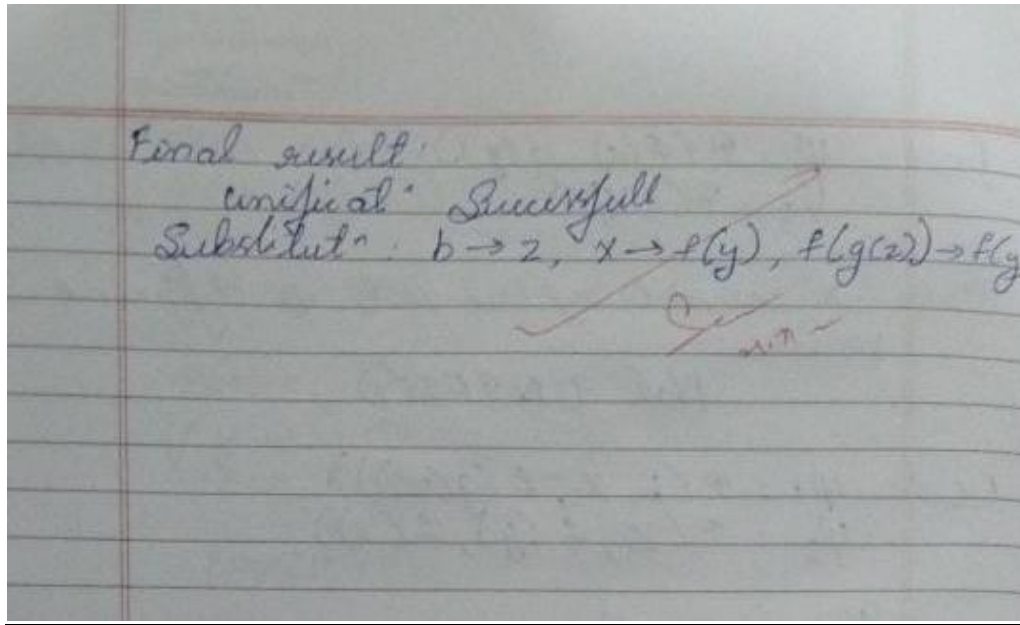 Final result:
unificatⁿ: Successfull
Substitutⁿ: b → z, x → f(y), f(g(z)) → f(y